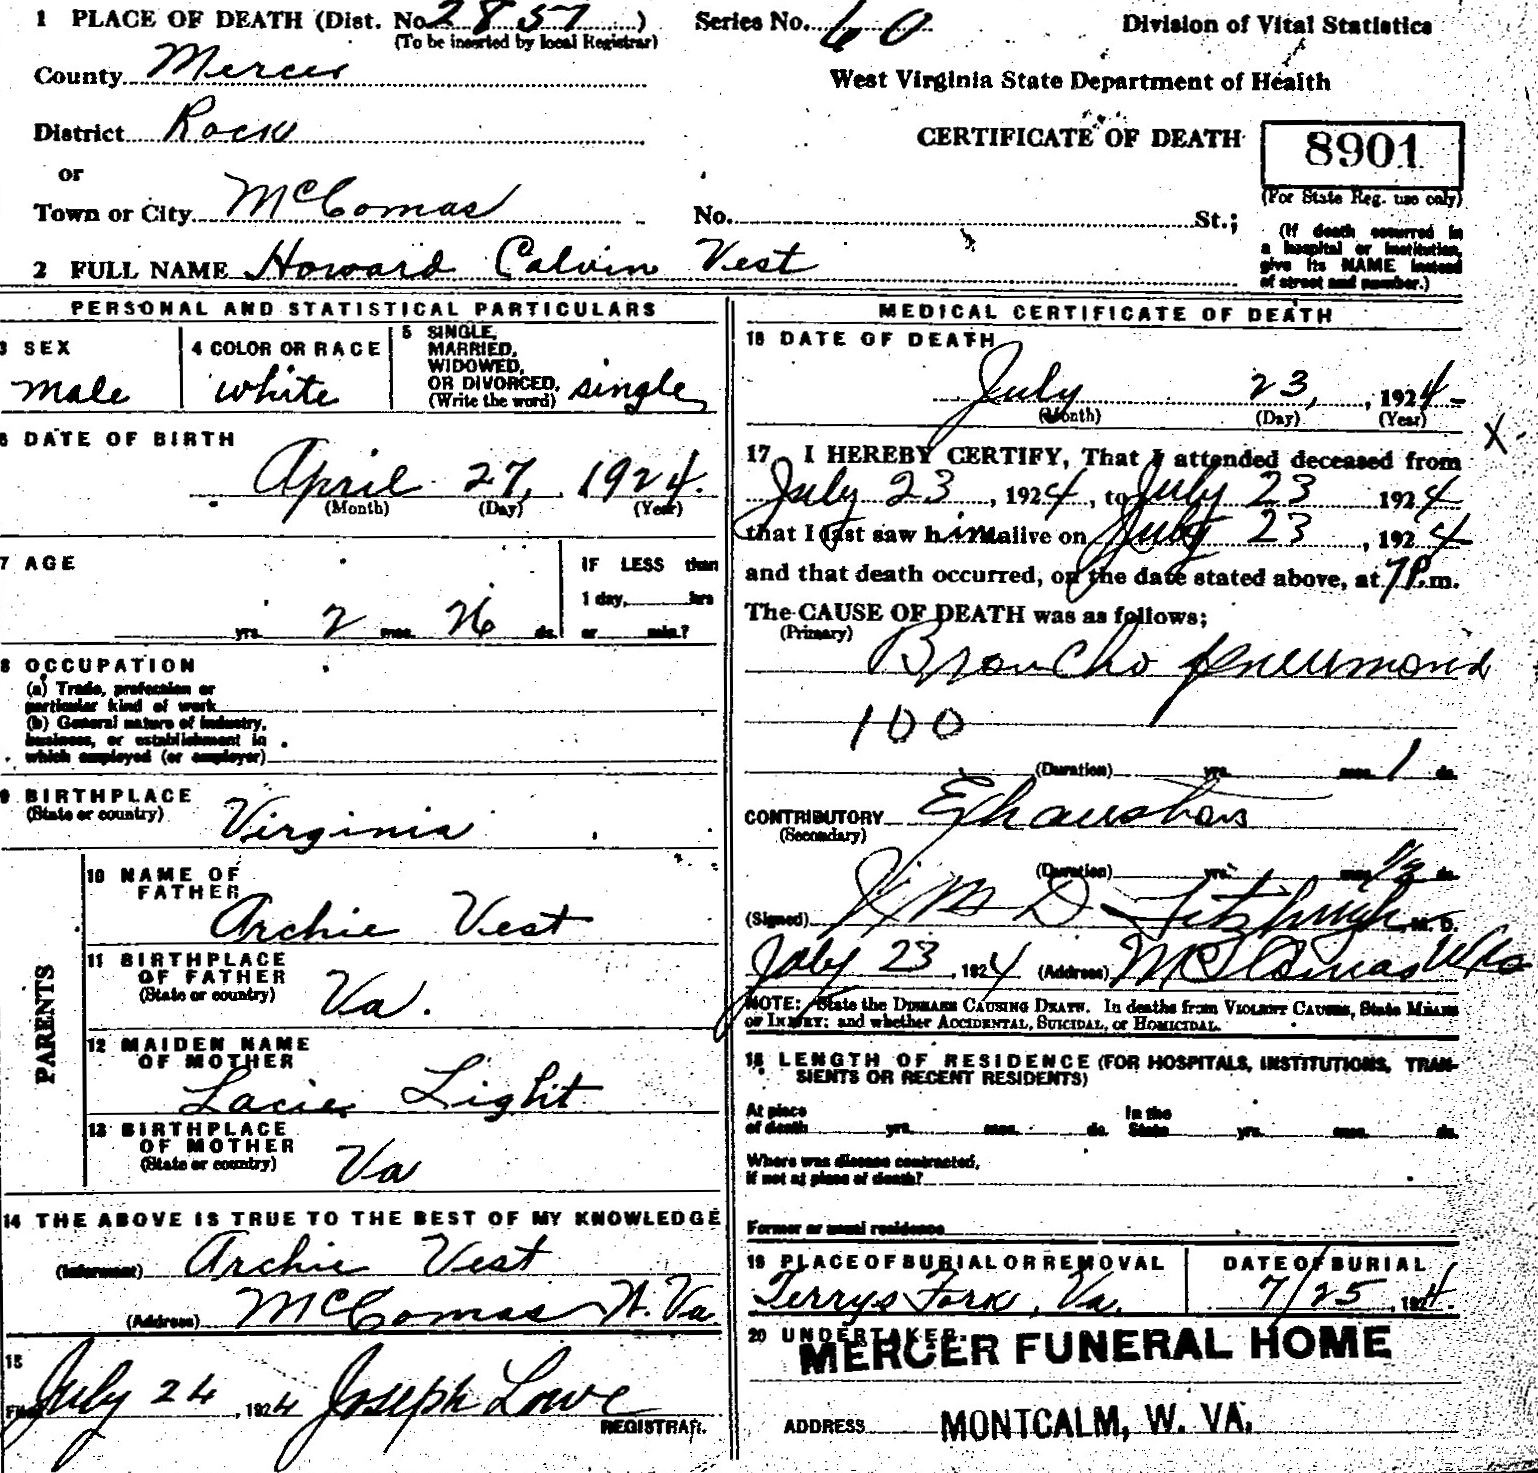 1 PLACE OF DEATH (Dist. No. 2857)
(To be inserted by local Registrar)
Series No. 60
Division of Vital Statistics
County Mercer
West Virginia State Department of Health
District Rock
CERTIFICATE OF DEATH
8901
(For State Reg. use only)
or
Town or City McComas
No. St.;
(If death occurred in
a hospital or institution,
give its NAME instead
of street and number.)
2 FULL NAME Howard Calvin Vest
PERSONAL AND STATISTICAL PARTICULARS
3 SEX
male
4 COLOR OR RACE
white
5 SINGLE,
MARRIED,
WIDOWED,
OR DIVORCED,
(Write the word) single
6 DATE OF BIRTH
April 27, 1924.
(Month) (Day) (Year)
7 AGE
yrs. 2 mos. 26 ds.
IF LESS than
1 day, hrs
or min.?
8 OCCUPATION
(a) Trade, profession or
particular kind of work
(b) General nature of industry,
business, or establishment in
which employed (or employer)
9 BIRTHPLACE
(State or country) Virginia
PARENTS
10 NAME OF
FATHER
Archie Vest
11 BIRTHPLACE
OF FATHER
(State or country) Va.
12 MAIDEN NAME
OF MOTHER
Lacie Light
13 BIRTHPLACE
OF MOTHER
(State or country) Va
14 THE ABOVE IS TRUE TO THE BEST OF MY KNOWLEDGE
(Informant) Archie Vest
(Address) McComas W. Va.
15
Filed July 24, 1924 Joseph Lowe
REGISTRAR.
MEDICAL CERTIFICATE OF DEATH
16 DATE OF DEATH
July 23, , 1924
(Month) (Day) (Year)
X
17 I HEREBY CERTIFY, That I attended deceased from
July 23, 1924, to July 23 1924
that I last saw him alive on July 23, 1924
and that death occurred, on the date stated above, at 7 P.m.
The CAUSE OF DEATH was as follows;
(Primary)
Broncho pneumonia
100
(Duration) yrs. mos. 1 ds.
CONTRIBUTORY Exhaustion
(Secondary)
(Duration) yrs. mos. 1/2 ds.
(Signed) Fitzhugh, M. D.
July 23, 1924 (Address) McComas W Va
NOTE: State the DISEASE CAUSING DEATH. In deaths from VIOLENT CAUSES, State MEANS
OF INJURY; and whether ACCIDENTAL, SUICIDAL, or HOMICIDAL.
18 LENGTH OF RESIDENCE (FOR HOSPITALS, INSTITUTIONS, TRAN-
SIENTS OR RECENT RESIDENTS)
At place
of death yrs. mos. ds.
In the
State yrs. mos. ds.
Where was disease contracted,
if not at place of death?
Former or usual residence
19 PLACE OF BURIAL OR REMOVAL
Terrys Fork, Va.
DATE OF BURIAL
7/25, 1924.
20 UNDERTAKER
MERCER FUNERAL HOME
ADDRESS MONTCALM, W. VA.